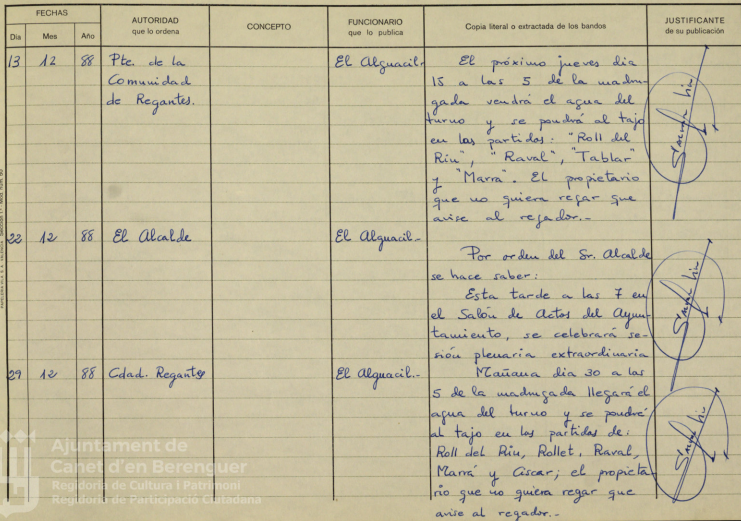 FECHAS
Dia Mes Año
AUTORIDAD
que lo ordena
CONCEPTO
FUNCIONARIO
que lo publica
Copia literal o extractada de los bandos
JUSTIFICANTE
de su publicación
13 12 88 Pte. de la
Comunidad
de Regantes.
El Alguacil.-
El próximo jueves dia
15 a las 5 de la madru-
gada vendrá el agua del
turno y se pondrá al tajo
en los partidos: "Roll del
Riu", "Raval", "Tablar"
y "Marra". El propietario
que no quiera regar que
avise al regador.-
22 12 88 El Alcalde
El Alguacil.-
Por orden del Sr. Alcalde
se hace saber:
Esta tarde a las 7 en
el Salón de Actos del Ayun-
tamiento, se celebrará se-
sión plenaria extraordinaria
29 12 88 Cdad. Regantes
El Alguacil.-
Mañana dia 30 a las
5 de la madrugada llegará el
agua del turno y se pondré
al tajo en los partidos de:
Roll del Riu, Rollet, Raval,
Marrá y Ciscar; el propieta-
rio que no quiera regar que
avise al regador.-
Ajuntament de
Canet d'en Berenguer
Regidoria de Cultura i Patrimoni
Regidoria de Participació Ciutadana